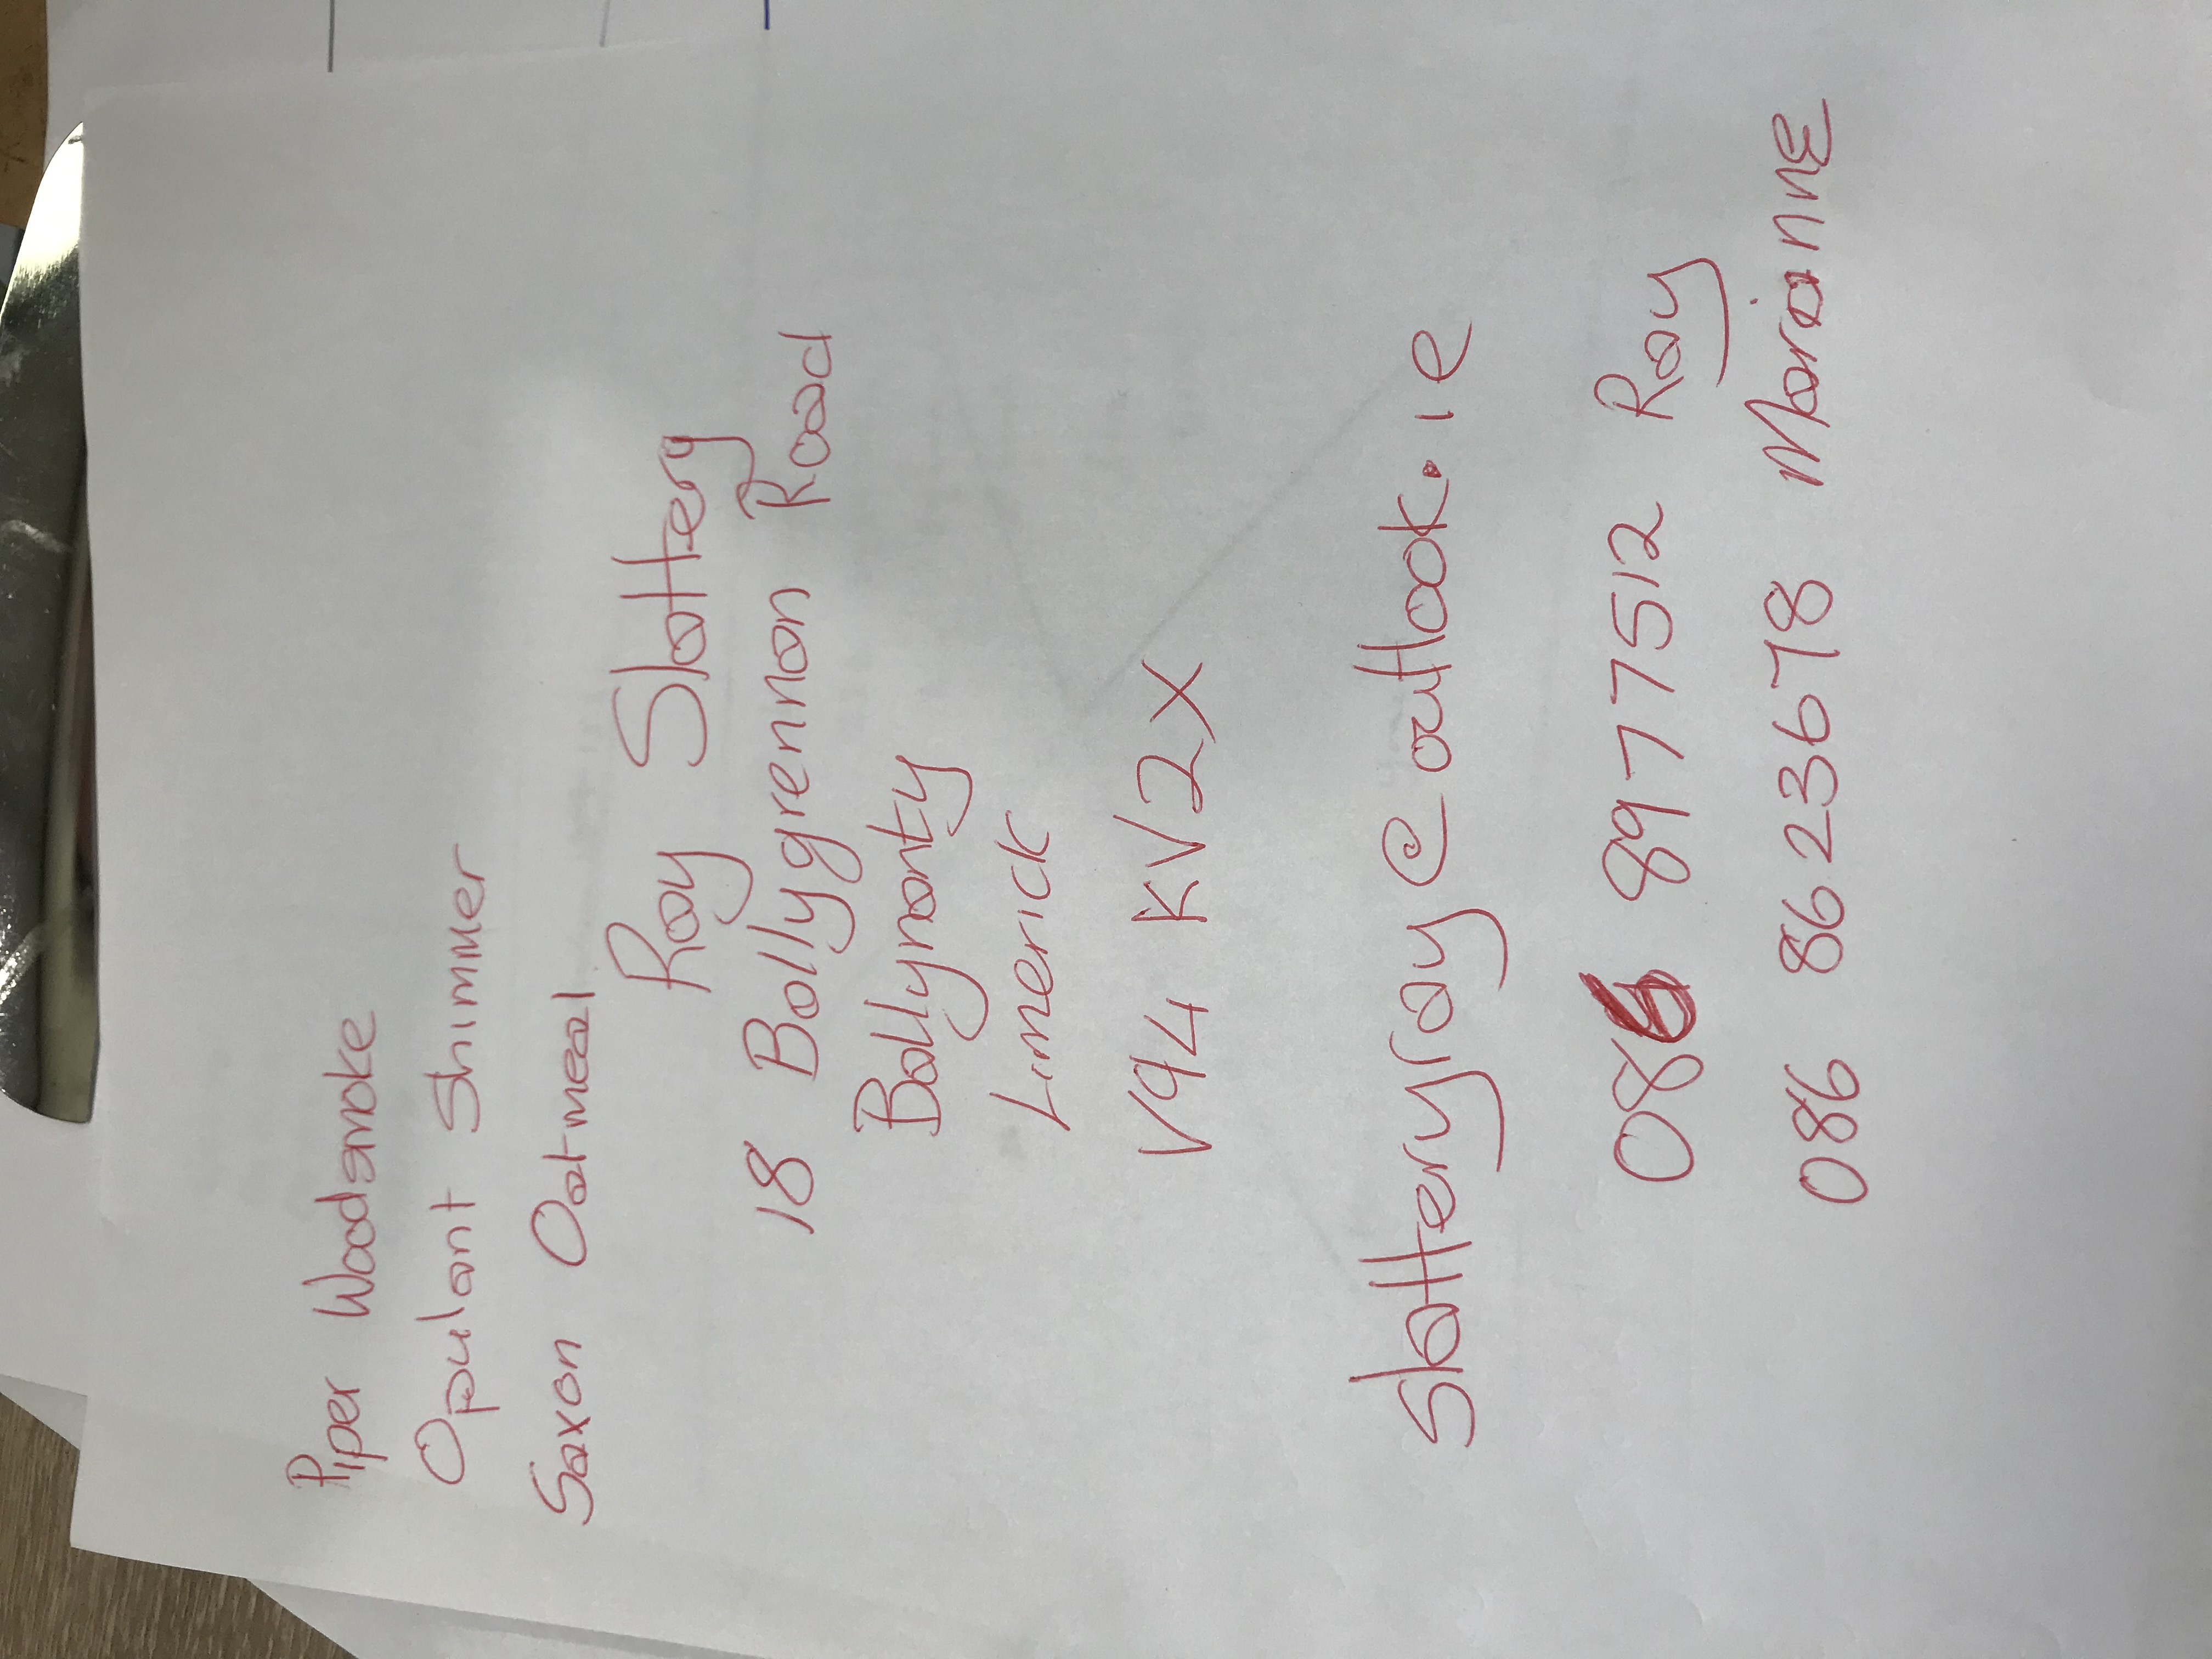 Piper Woodsmoke
Opulant Shimmer
Saxon Oatmeal
Roy Slattery
18 Ballygrennan Road
Ballynanty
Limerick
V94 KV2X
slatteryray@outlook.ie
086 8977512 Ray
086 8623678 Marianne